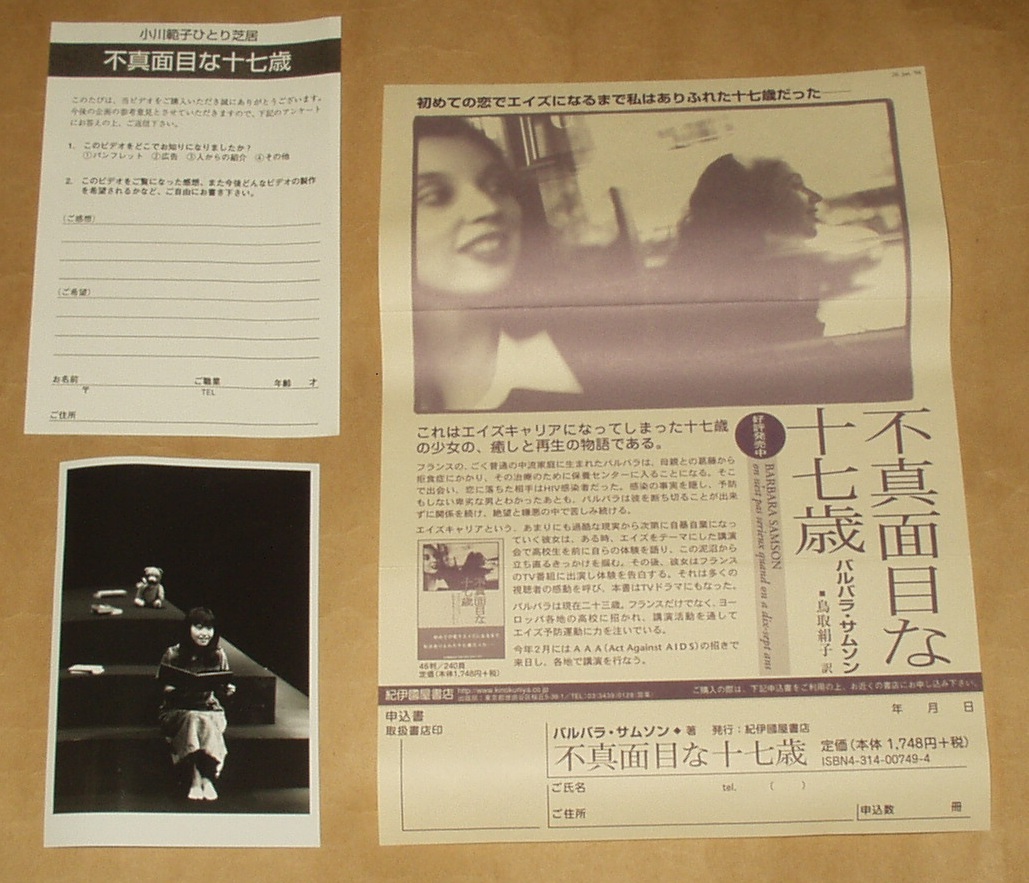 小川範子ひとり芝居
不真面目な十七歳
このたびは、当ビデオをご購入いただき誠にありがとうございます。
今後の企画の参考意見とさせていただきますので、下記のアンケート
にお答えの上、ご返信下さい。
1. このビデオをどこでお知りになりましたか?
①パンフレット ②広告 ③人からの紹介 ④その他
2. このビデオをご覧になった感想、また今後どんなビデオの製作
を希望されるかなど、ご自由にお書き下さい。
(ご感想)
(ご希望)
お名前 ご職業 年齢 才
〒 TEL
ご住所
初めての恋でエイズになるまで私はありふれた十七歳だった——
これはエイズキャリアになってしまった十七歳
の少女の、癒しと再生の物語である。
フランスの、ごく普通の中流家庭に生まれたバルバラは、母親との葛藤から
拒食症にかかり、その治療のために保養センターに入ることになる。そこ
で出会い、恋に落ちた相手はHIV感染者だった。感染の事実を隠し、予防
もしない卑劣な男とわかったあとも、バルバラは彼を断ち切ることが出来
ずに関係を続け、絶望と嫌悪の中で苦しみ続ける。
エイズキャリアという、あまりにも過酷な現実から次第に自暴自棄になっ
ていく彼女は、ある時、エイズをテーマにした講演
会で高校生を前に自らの体験を語り、この泥沼から
立ち直るきっかけを掴む。その後、彼女はフランス
のTV番組に出演し体験を告白する。それは多くの
視聴者の感動を呼び、本書はTVドラマにもなった。
バルバラは現在二十三歳。フランスだけでなく、ヨー
ロッパ各地の高校に招かれ、講演活動を通して
エイズ予防運動に力を注いでいる。
今年2月にはAAA(Act Against AIDS)の招きで
来日し、各地で講演を行なう。
46判/240頁
定価(本体1,748円+税)
好評発売中
不真面目な
十七歳
BARBARA SAMSON
on n'est pas sérieux quand on a dix-sept ans
バルバラ・サムソン
■鳥取絹子 訳
紀伊國屋書店 http://www.kinokuniya.co.jp
ご購入の際は、下記申込書をご利用の上、お近くの書店にお申し込み下さい。
申込書
年 月 日
取扱書店印
バルバラ・サムソン◆著 発行:紀伊國屋書店
不真面目な十七歳
定価(本体 1,748円+税)
ISBN4-314-00749-4
ご氏名 tel. ( )
ご住所
申込数 冊